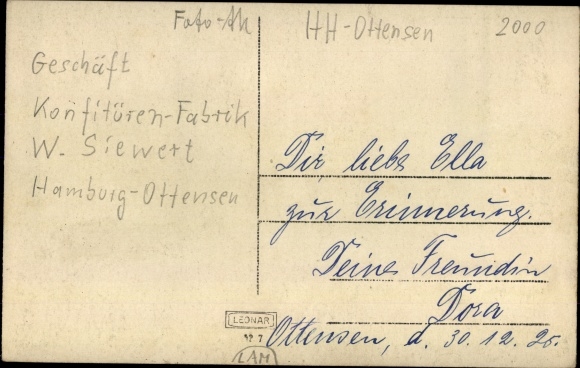 Foto-Ak
HH-Ottensen
2000
Geschäft
Konfitüren-Fabrik
W. Siewert
Hamburg-Ottensen
Dir, liebe Ella
zur Erinnerung.
Deine Freundin
Dora
Ottensen, d. 30.12.25.
LEONAR
12 7
LAM